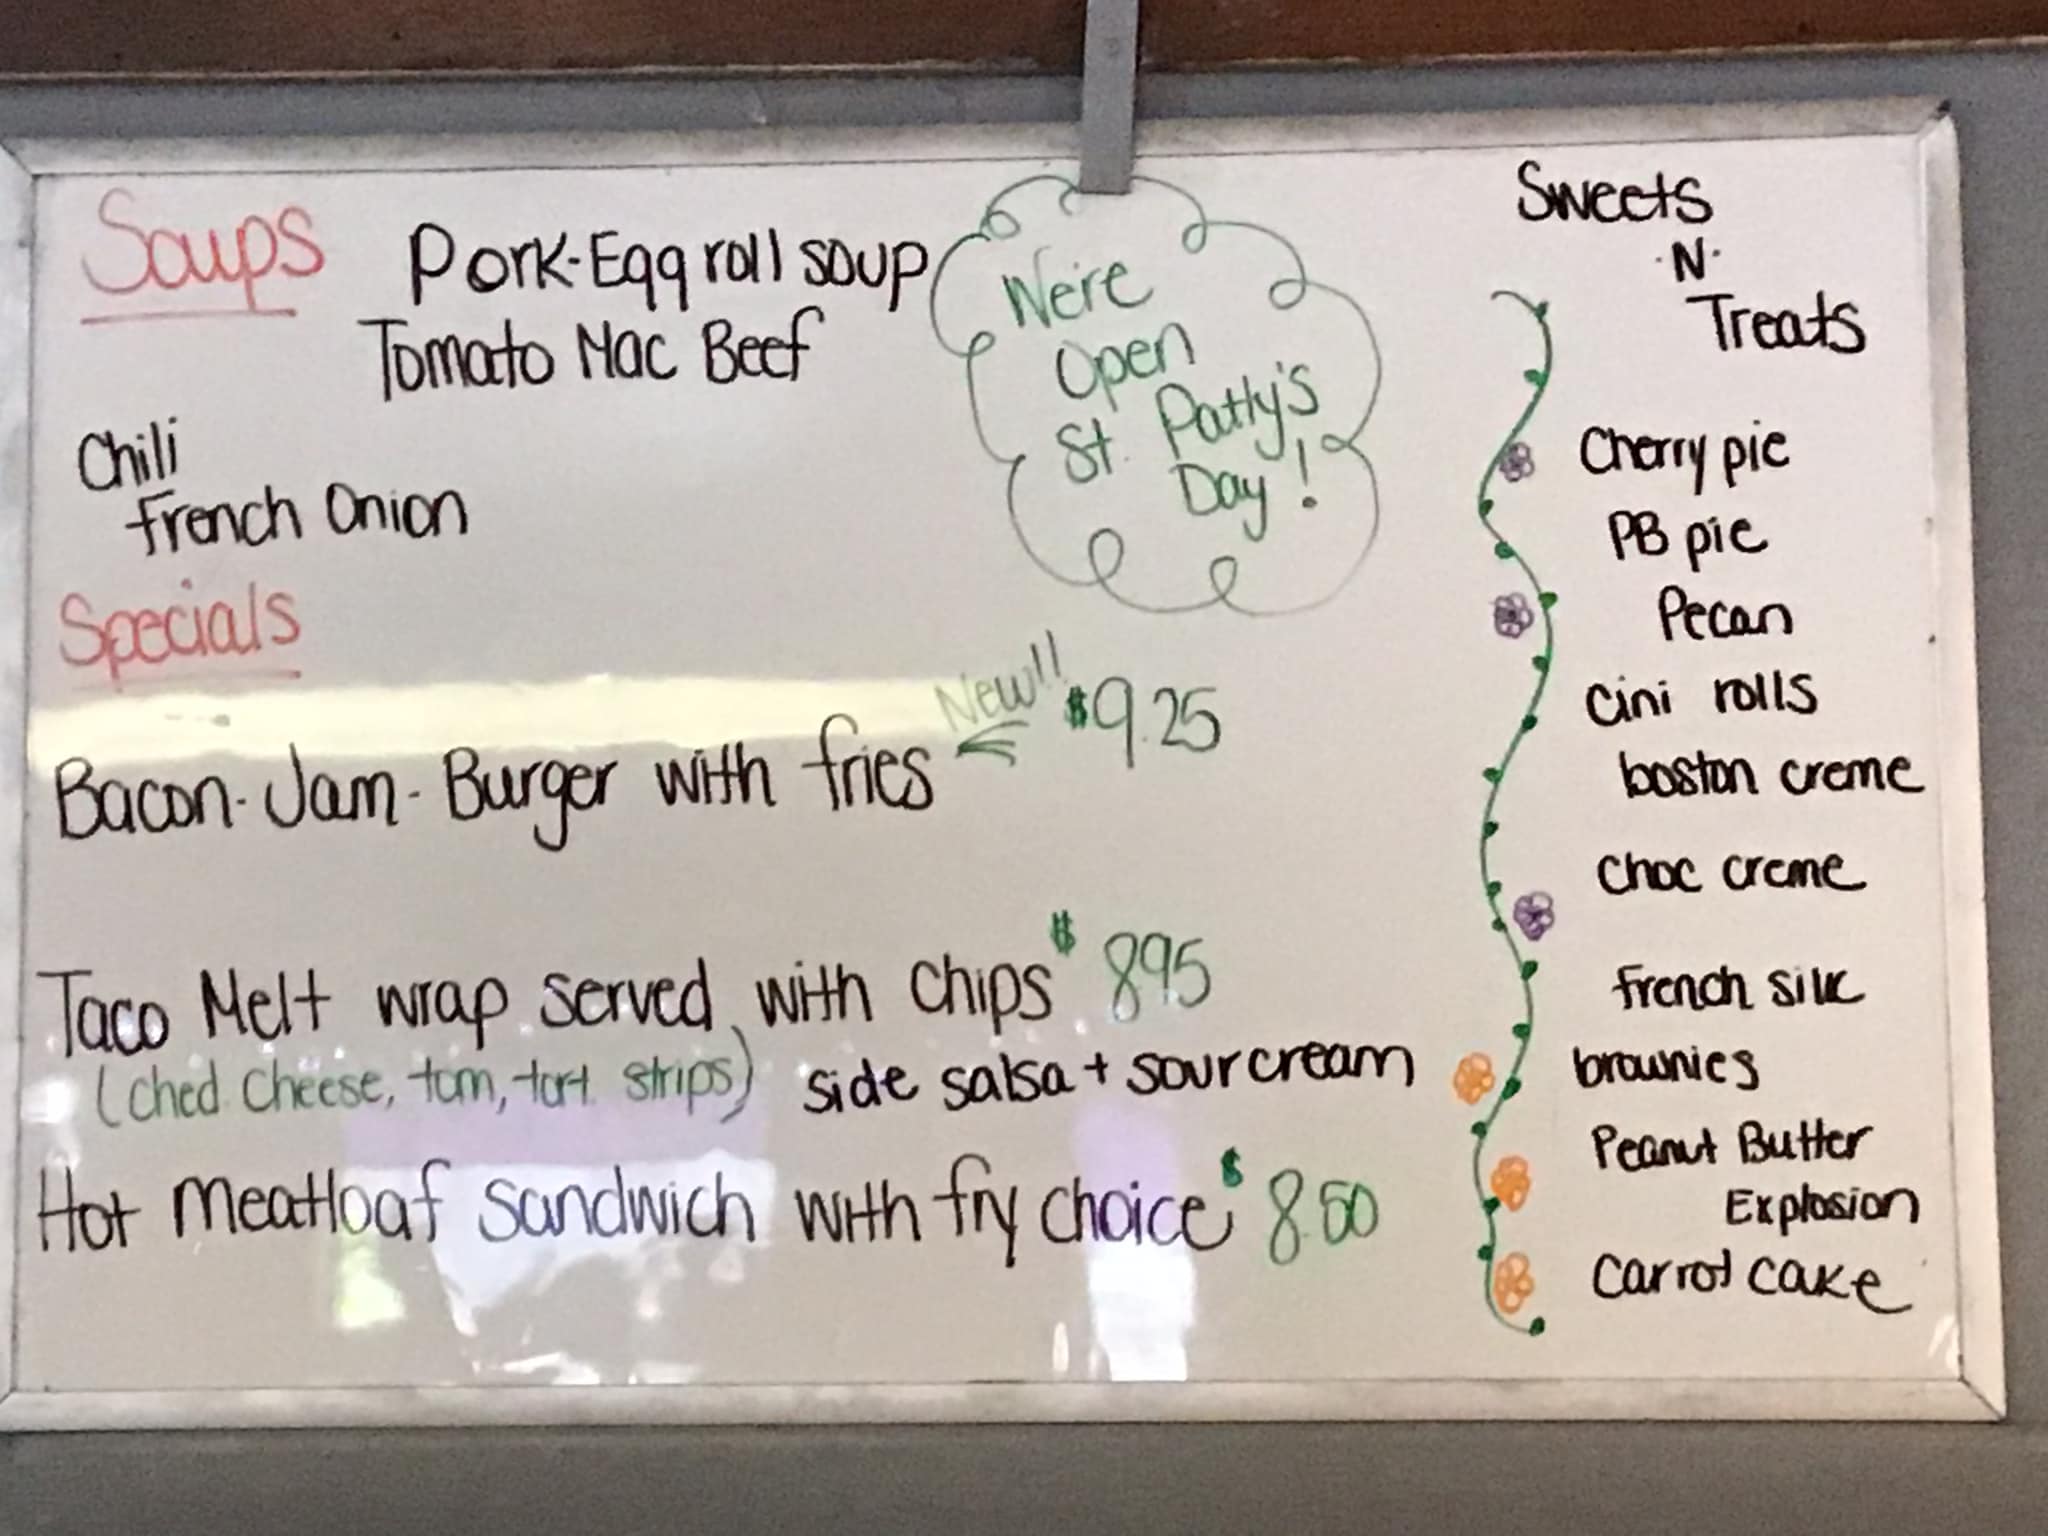 Soups
Pork-Egg roll soup
Tomato Mac Beef
Chili
French Onion
We're
Open
St. Patty's
Day!
Specials
New!!
Bacon-Jam-Burger with fries $9.25
Taco Melt wrap served with chips $8.95
(ched. cheese, tom, tort. strips) side salsa + sour cream
Hot meatloaf sandwich with fry choice $8.50
Sweets
·N·
Treats
Cherry pie
PB pie
Pecan
Cini rolls
boston creme
choc creme
French silk
brownies
Peanut Butter
Explosion
Carrot cake